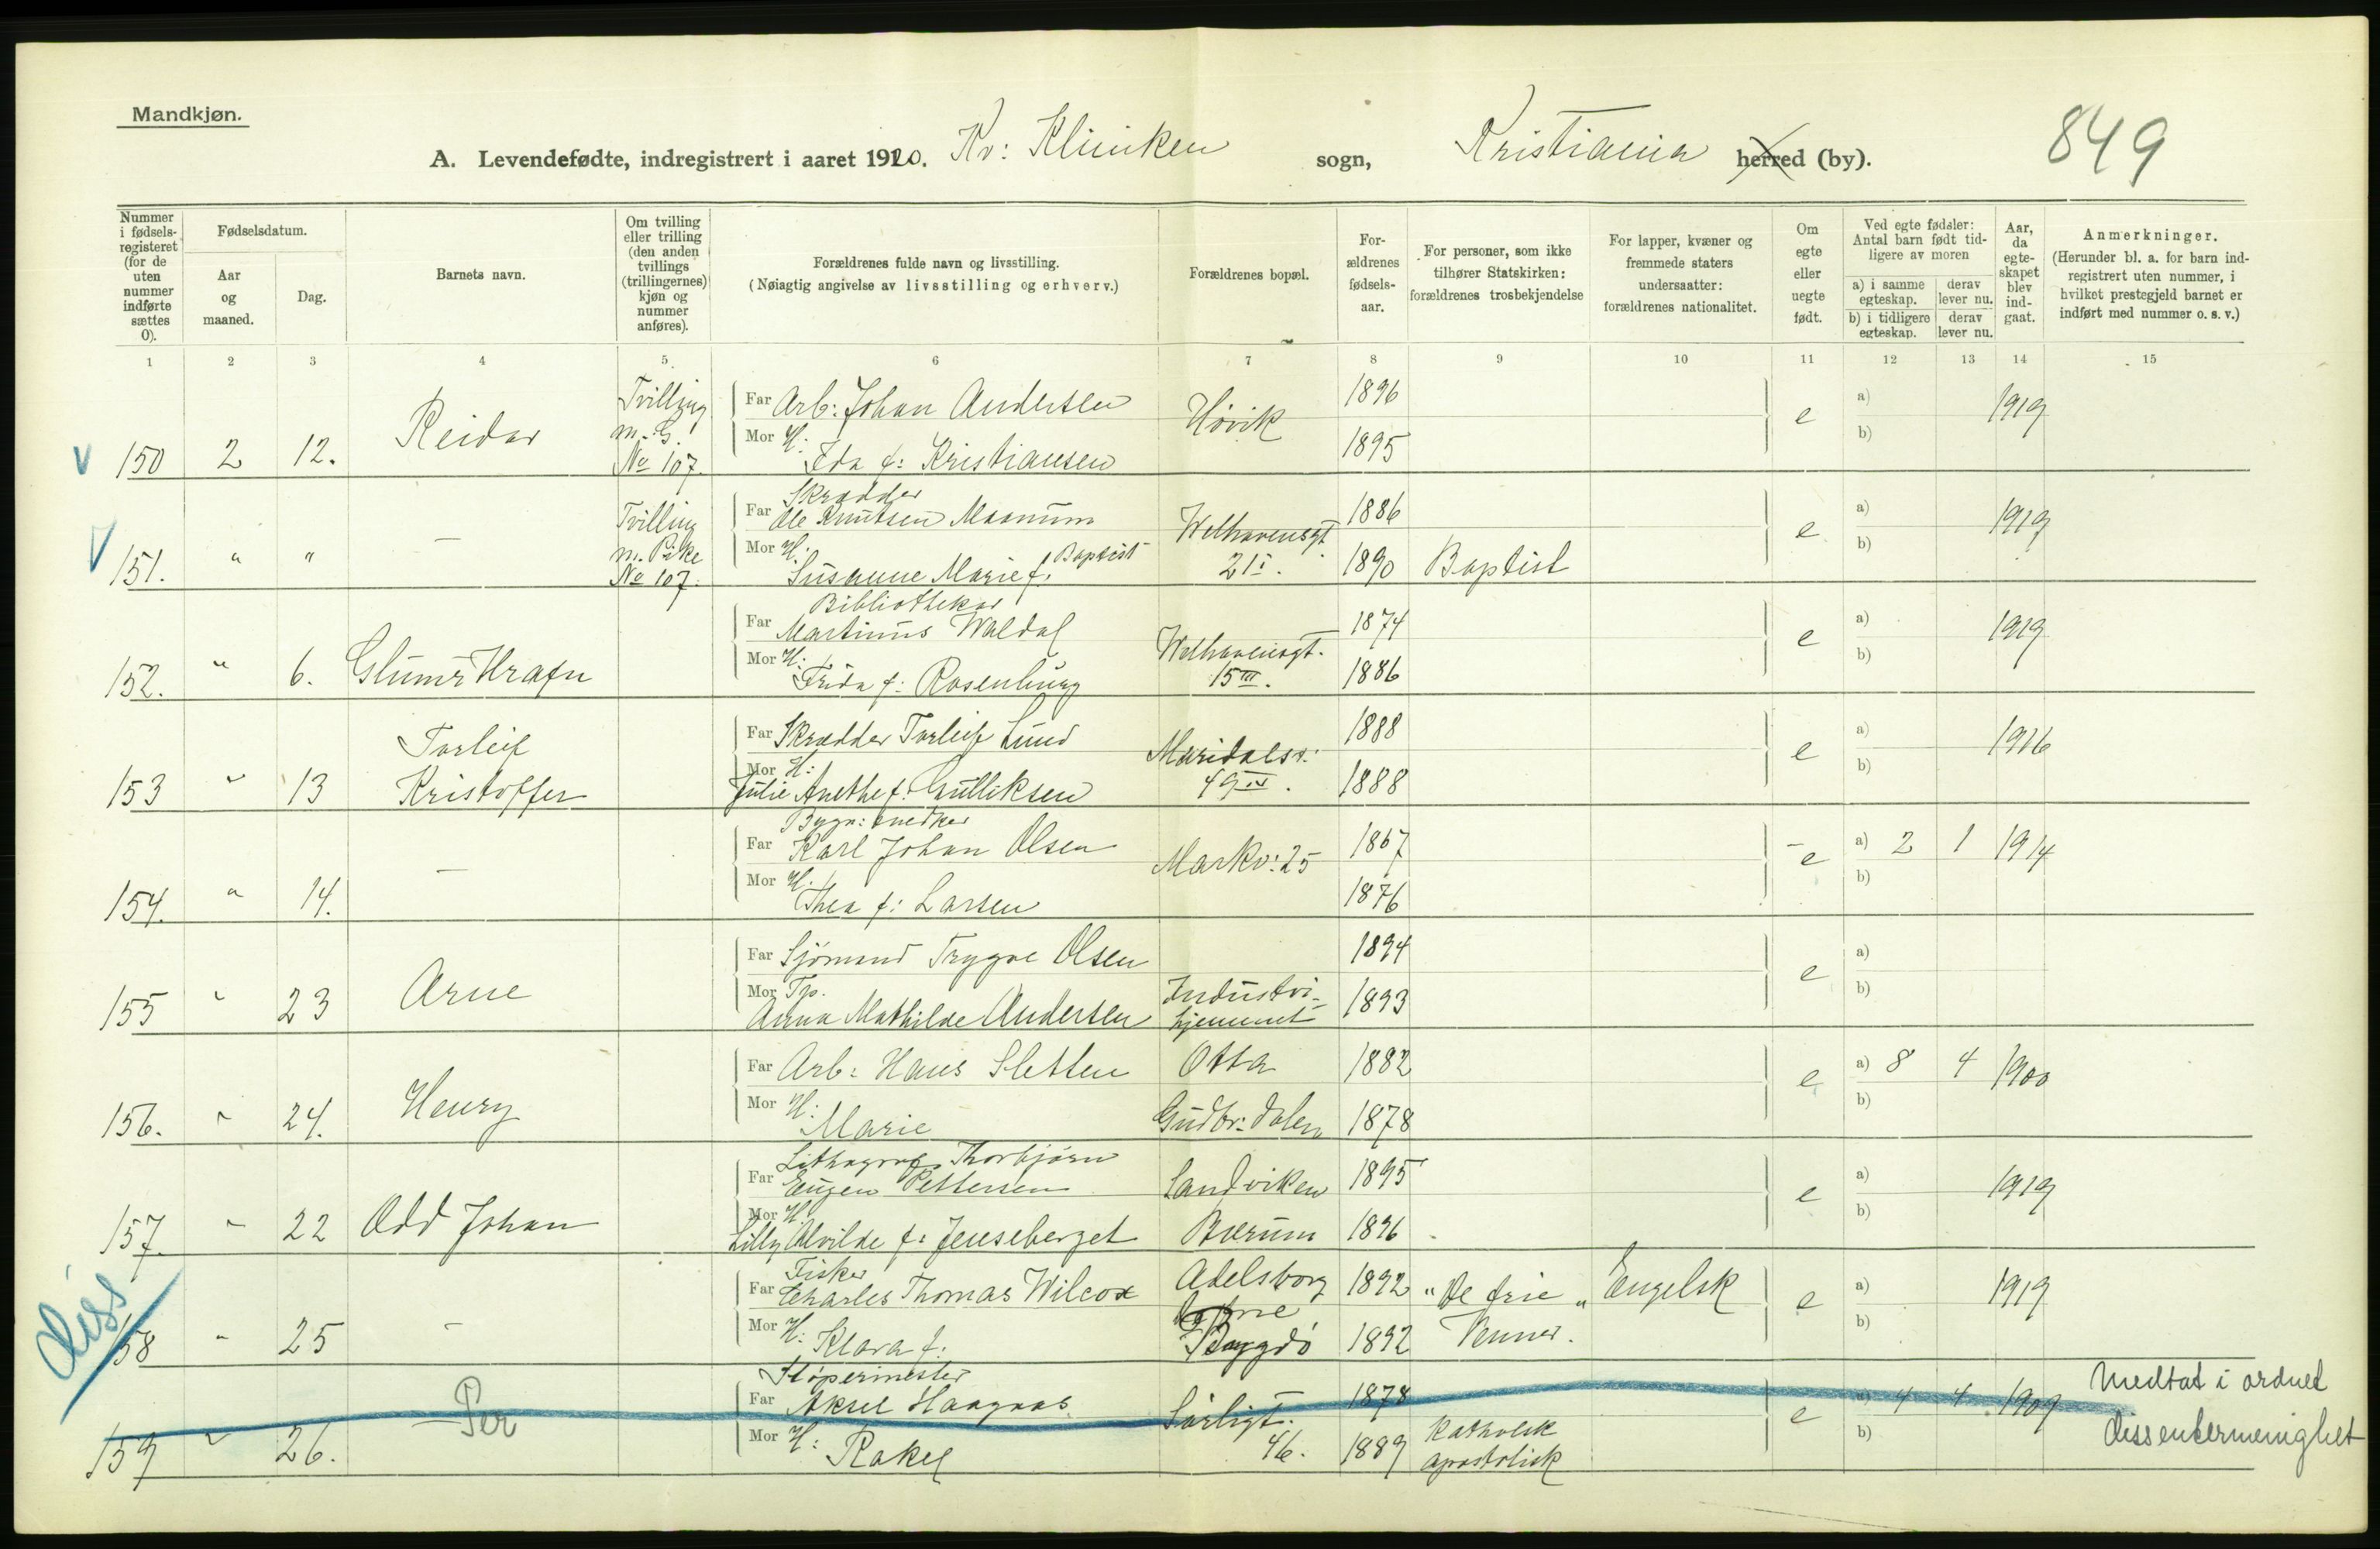 Mandkjøn.
A. Levendefødte, indregistrert i aaret 1920. Kv: Kliniken sogn, Kristiania herred (by). 849
Nummer i fødsels-registeret (for de uten nummer indførte sættes 0).
Fødselsdatum.
Aar og maaned.
Dag.
Barnets navn.
Om tvilling eller trilling (den anden tvillings (trillingernes) kjøn og nummer anføres).
Forældrenes fulde navn og livsstilling.
(Nøiagtig angivelse av livsstilling og erhverv.)
Forældrenes bopæl.
For-ældrenes fødsels-aar.
For personer, som ikke tilhører Statskirken: forældrenes trosbekjendelse
For lapper, kvæner og fremmede staters undersaatter: forældrenes nationalitet.
Om egte eller uegte født.
Ved egte fødsler: Antal barn født tid-ligere av moren
a) i samme egteskap. derav lever nu.
b) i tidligere egteskap. derav lever nu.
Aar, da egte-skapet blev ind-gaat.
Anmerkninger.
(Herunder bl. a. for barn ind-registrert uten nummer, i hvilket prestegjeld barnet er indført med nummer o. s. v.)
1 2 3 4 5 6 7 8 9 10 11 12 13 14 15
Tvilling Far Arb: Johan Andersen Høvik 1896 e a) 1919
V 150 2 12. Reidar m. G. No 107. Mor H: Ida f: Kristiansen 1895 b)
Skrædder
Tvilling Far Ole Knutsen Maanum Welhavensgt 1886 e a) 1919
V 151. " " — m. Pike No 107. Mor H: Susanne Marie f: Baptist 21 I. 1890 Baptist b)
Bibliothekar
Far Martinus Waldal Welhavensgt. 1874 e a) 1919
152. " 6. Glumr Hrafn Mor H: Frida f: Rosenburg 15 III. 1886 b)
Torleif Far Skrædder Torleif Lund Maridalsv: 1888 e a) 1916
153 " 13 Kristoffer Mor H: Julie Anethe f. Gulliksen 49 IV. 1888 b)
Bygn: snedker
Far Karl Johan Olsen Markv: 25 1867 e a) 2 1 1914
154. " 14. — Mor H: Thea f: Larsen 1876 b)
Far Sjømand Trygve Olsen 1894 e a)
155 " 23 Arne Mor Tp. Anna Mathilde Andersen Industri-hjemmet 1893 b)
Far Arb: Hans Sletten Otta 1882 e a) 8 4 1900
156. " 24. Henry Mor H: Marie Gudbr: dalen 1878 b)
Lithograf Thorbjørn
Far Eugen Pettersen Sandviken 1895 e a) 1919
157. " 22 Odd Johan Mor H. Lilly Alvilde f: Jenseberget Bærum 1896 b)
Fisker
Far Charles Thomas Wilcox Adelsborg 1892 "De frie " Engelsk e a) 1919
Diss 158 " 25 — Mor H: Klara f: Bygdö 1892 Venner. b)
Støpermester
Per Far Aksel Haagaas Sørligt. 1878 e a) 4 4 1909 Medtat i ordnet
159 " 26. — Mor H: Rakel 46. 1889 Katholsk apostolisk b) dissentermenighet